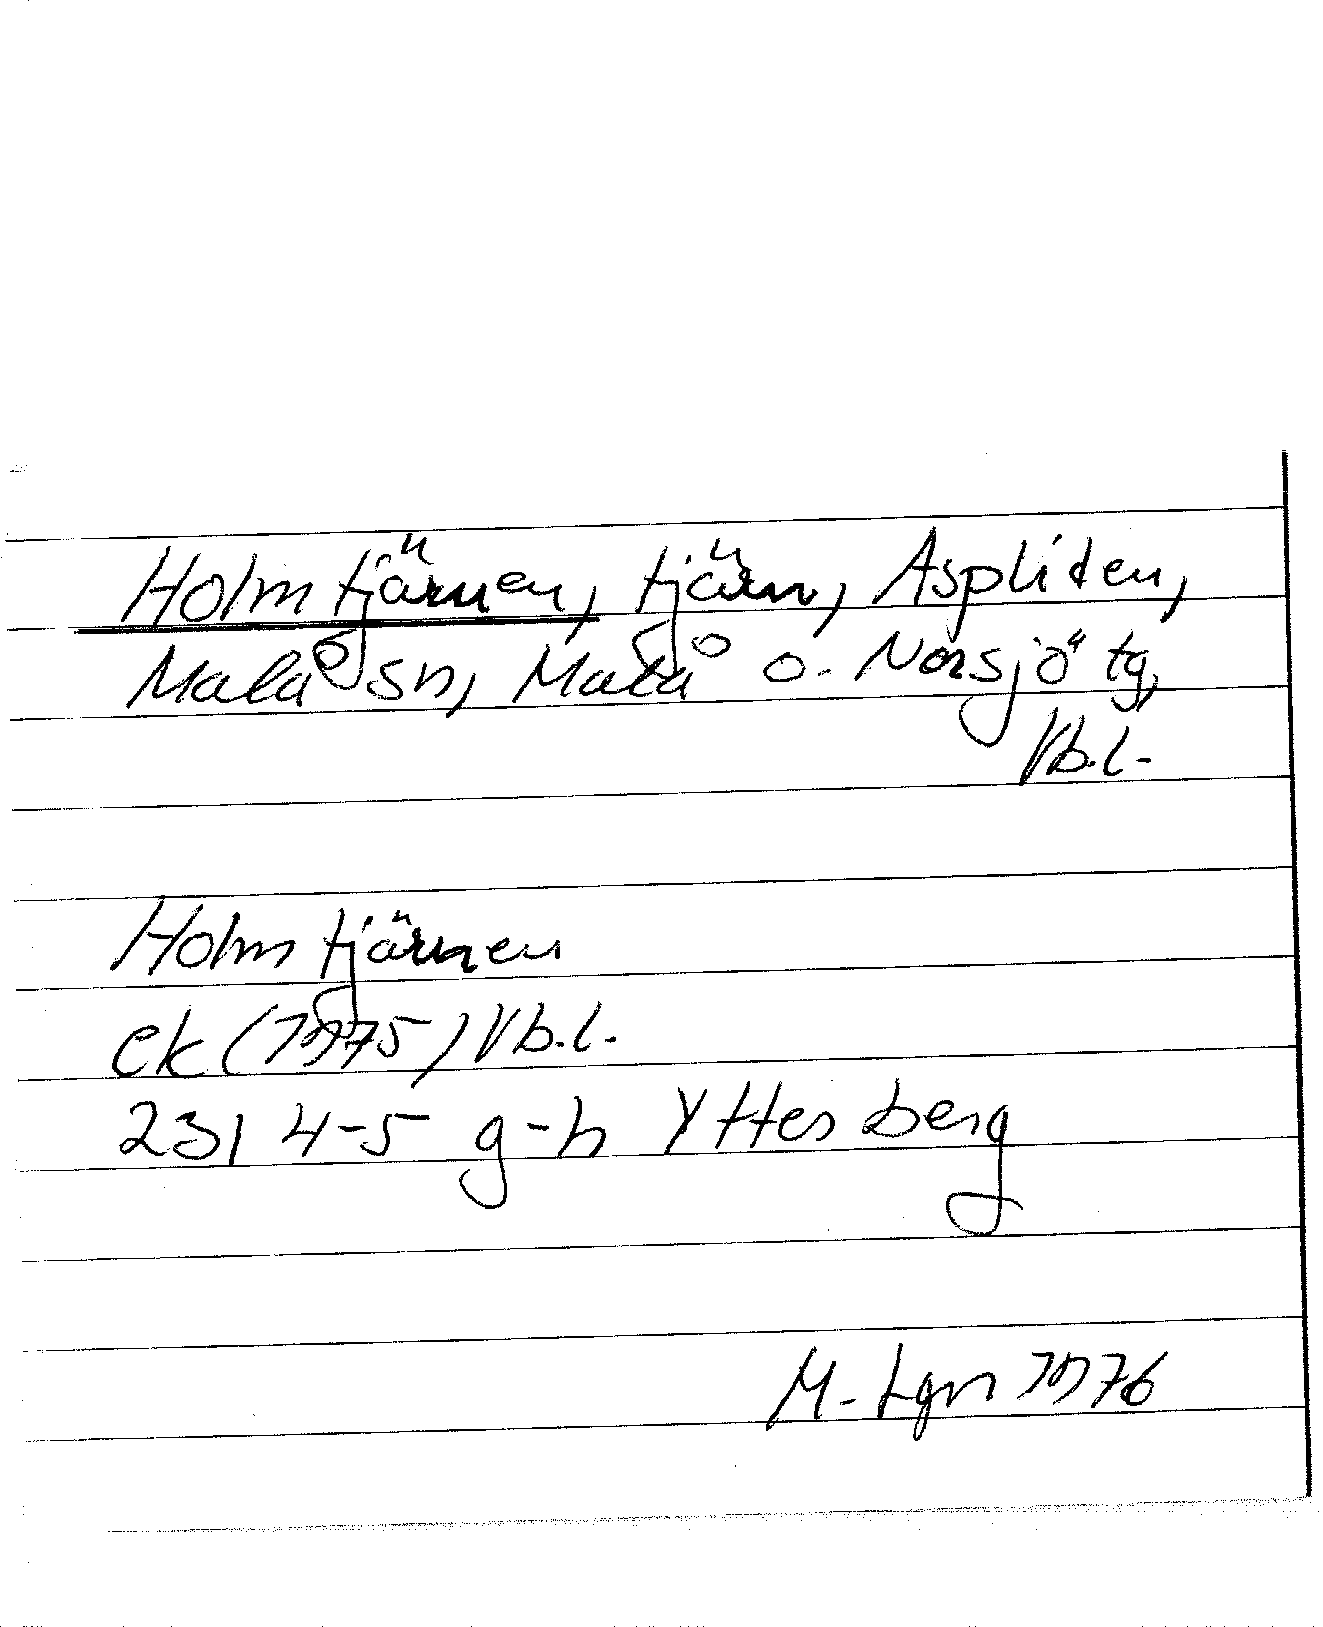 Holmtjärnen, tjärn, Aspliden,
Malå sn, Malå o. Norsjö tg,
Vb.l.
Holmtjärnen
ek (1975) Vb.l.
231 4-5 g-h Ytterberg
M. Lgn 1976